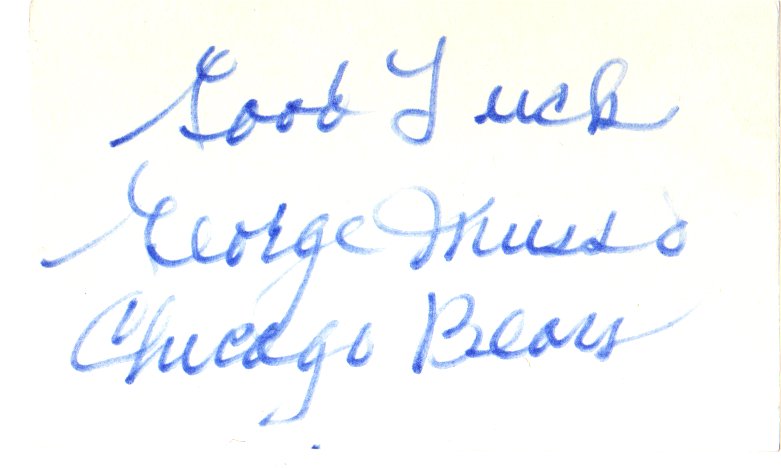 Good Luck
George Musso
Chicago Bears